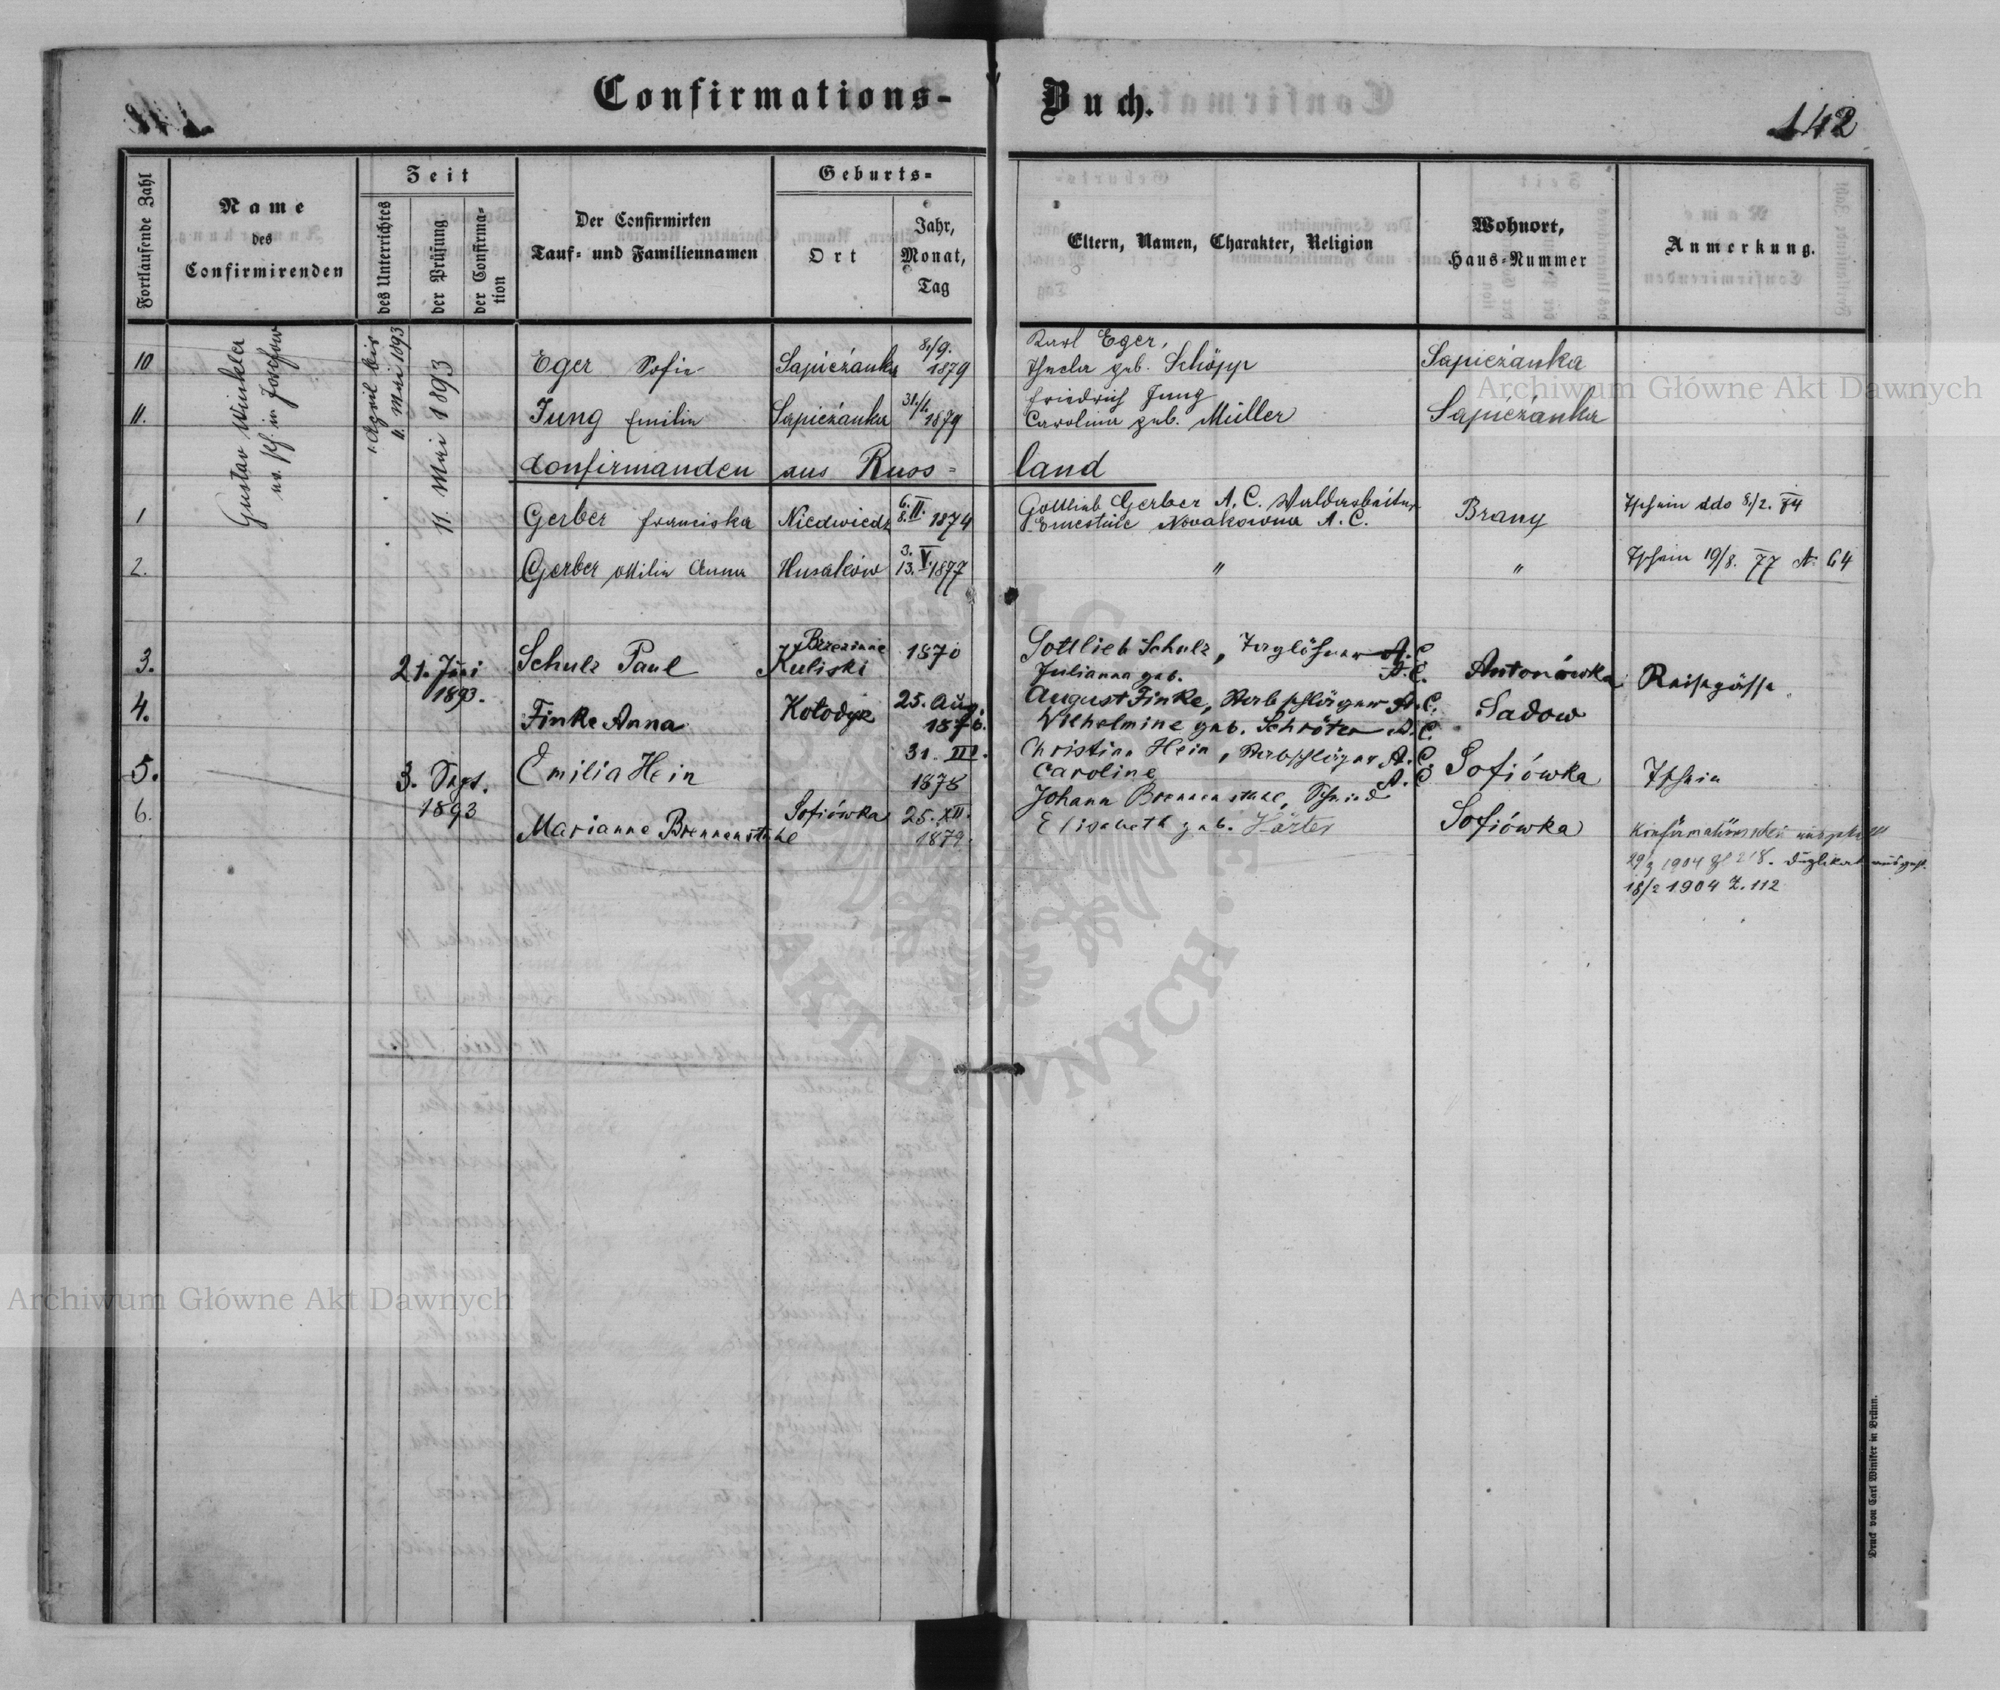 Confirmations-Buch.
142
Fortlaufende Zahl
Name
des
Confirmirenden
Zeit
des Unterrichtes
der Prüfung
der Confirma-
tion
Der Confirmirten
Tauf- und Familiennamen
Geburts-
Ort
Jahr,
Monat,
Tag
Eltern, Namen, Charakter, Religion
Wohnort,
Haus-Nummer
Anmerkung.
Gustav Winkler
in Josefow
April bis
11. Mai 1893
11. Mai 1893
10 Eger Sofie Sapieżanka 8./9. 1879
Karl Eger,
Thecla geb. Schöpp
Sapieżanka
11. Jung Emilie Sapieżanka 31./1. 1879
Friedrich Jung
Carolina geb. Müller
Sapieżanka
Confirmanden aus Russ=land
1 Gerber Franciska Niedwiedz 6./8. II. 1874
Gottlieb Gerber A. C.
Ernestine Novakowna A. C.
Brany
Tfschein ddo 8./2. 74
2. Gerber Ottilie Anna Husaków 3./13. V. 1877
" "
Tfschein 19/8. 77 N. 64
3. 21. Juni 1893. Schulz Paul
Brzezinie
Kuliski
1870
Gottlieb Schulz, Taglöhner A. C.
Julianna geb. A. C.
Antonówka
Reisepässe
4. Finke Anna Kołodze 25. Aug. 1876.
August Finke, A. C.
Wilhelmine geb. Schröter A. C.
Sadow
5. 3. Sept. 1893 Emilia Hein 31. III. 1878
Christian Hein, A. C.
Caroline A. C.
Sofiówka
Tfschein
6. Marianne Brennenstuhl Sofiówka 25. XII. 1879.
Johann Brennenstuhl, Schmied
Elisabeth geb. Härter
Sofiówka
1904 Zl 218. Duplikat ausgest.
18/2 1904 Z. 112
Druck von Carl Winiker in Brünn.
Archiwum Główne Akt Dawnych
Archiwum Główne Akt Dawnych
AKT DAWNYCH